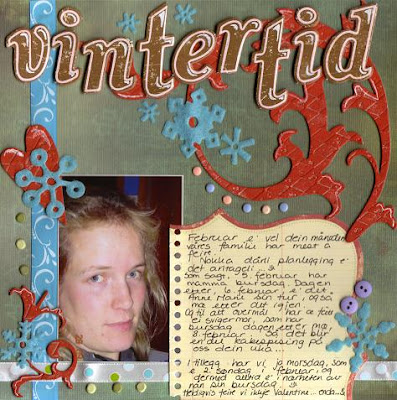 vintertid
Februar e' vel dein månaden
våres familie har mest å
feire.
Nokka dårli planlegging e
det antageli
som sagt, 5. februar har
mamma bursdag. Dagen
etter, 6. februar, e' det
Anne Marie sin tur, også
må etter det igjen.
Og til alt overmål har æ fått
ei svigermor, som har
bursdag dagen etter mæ,
8. februar. Så det blir
en del kakespising på
oss dein uka...
I tillegg har vi jo morsdag, som
e 2. søndag i februar, og
dermed alltid e i nærheten av
nån sin bursdag.
Heldigvis feire vi ikkje Valentine...